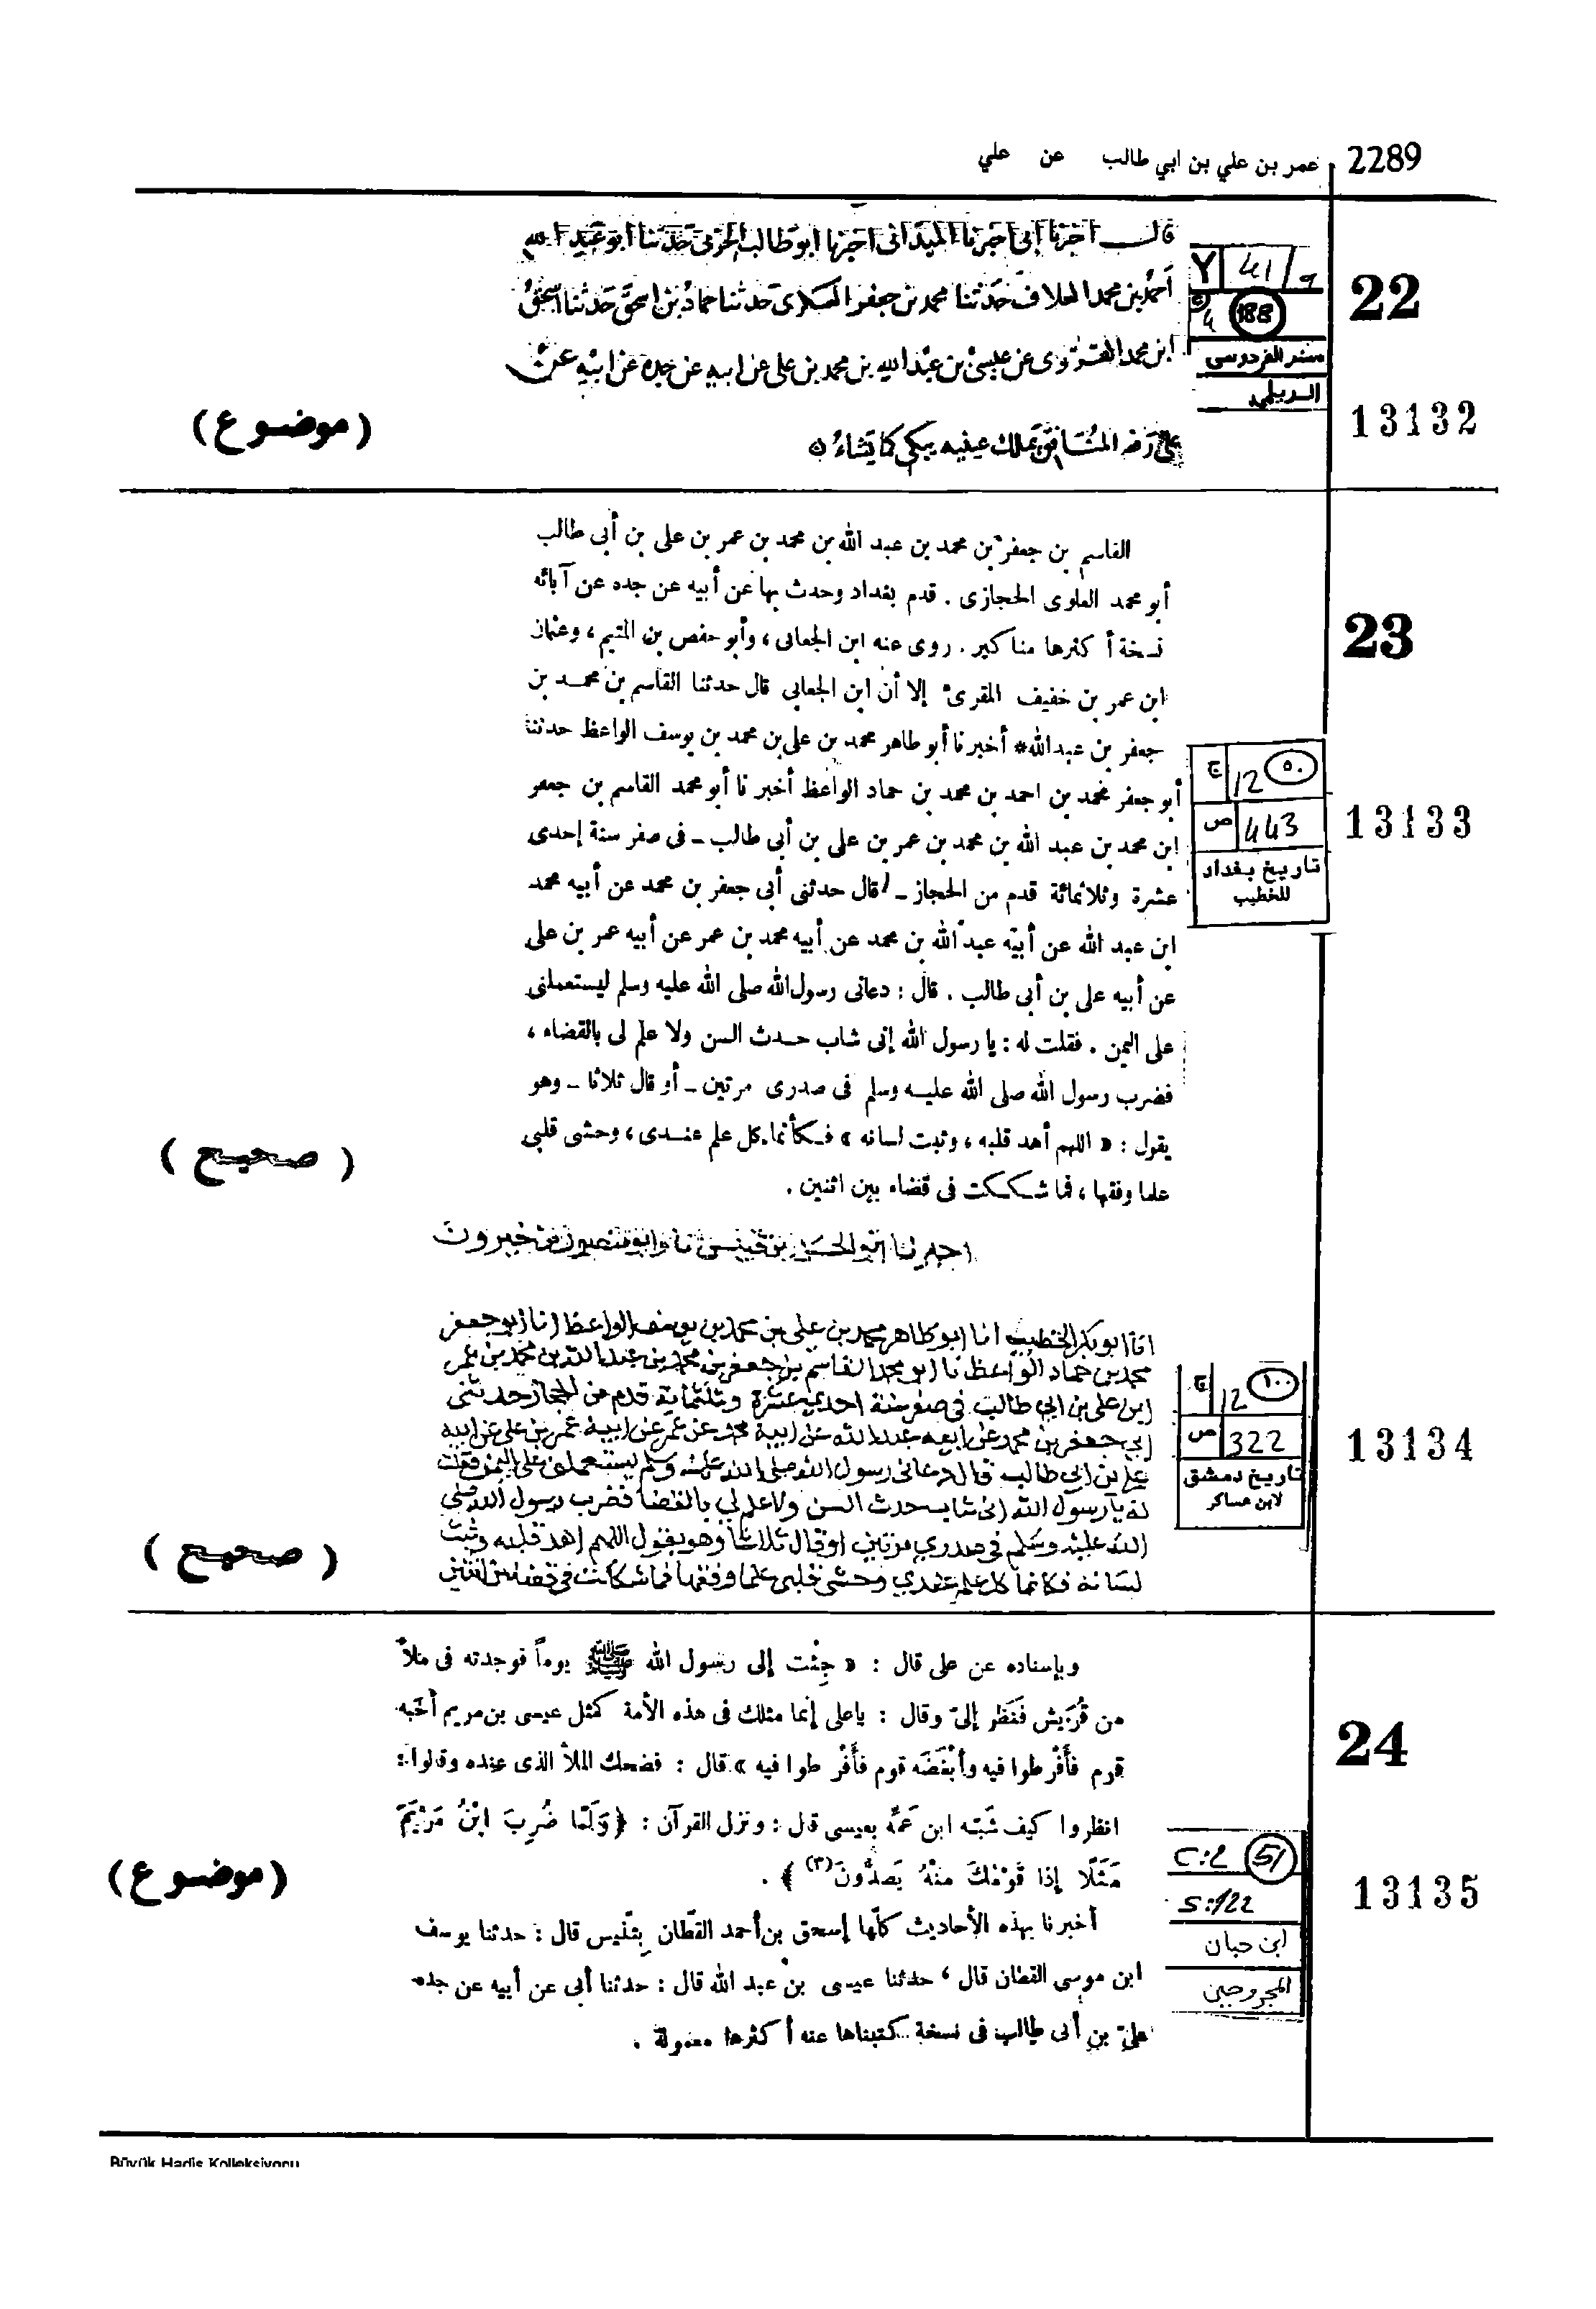 2289 عمر بن علي بن ابي طالب عن علي
22
41/9
188
مسند الفردوس
الديلمي
13132
قالــ اخبرنا ابى اخبرنا الميدانى اخبرنا ابو طالب الحربى حدثنا ابو عبد الله
احمد بن محمد العلاف حدثنا محمد بن جعفر العسكرى حدثنا حماد بن اسحق حدثنا اسحق
ابن محمد الفروى عن عيسى بن عبد الله بن محمد بن على عن ابيه عن جده عن ابيه عن
على رضه المنافق يملك عينيه يبكى كما يشاء
(موضوع)
23
القاسم بن جعفر بن محمد بن عبد الله بن محمد بن عمر بن على بن أبى طالب
أبو محمد العلوى الحجازى . قدم بغداد وحدث بها عن أبيه عن جده عن آبائه
نسخة أكثرها مناكير . روى عنه ابن الجعابى ، وأبو حفص بن المتيم ، وعثمان
ابن عمر بن خفيف المقرئ إلا أن ابن الجعابى قال حدثنا القاسم بن محمد بن
جعفر بن عبد الله * أخبرنا أبو طاهر محمد بن على بن محمد بن يوسف الواعظ حدثنا
أبو جعفر محمد بن احمد بن محمد بن حماد الواعظ أخبرنا أبو محمد القاسم بن جعفر
ابن محمد بن عبد الله بن محمد بن عمر بن على بن أبى طالب ـ فى صفر سنة إحدى
عشرة وثلاثمائة قدم من الحجاز ـ قال حدثنى أبى جعفر بن محمد عن أبيه محمد
ابن عبد الله عن أبيه عبد الله بن محمد عن أبيه محمد بن عمر عن أبيه عمر بن على
عن أبيه على بن أبى طالب . قال : دعانى رسول الله صلى الله عليه وسلم ليستعملنى
على اليمن . فقلت له : يا رسول الله إنى شاب حدث السن ولا علم لى بالقضاء ،
فضرب رسول الله صلى الله عليه وسلم فى صدرى مرتين ـ أو قال ثلاثا ـ وهو
يقول : « اللهم أهد قلبه ، وثبت لسانه » فكأنما كل علم عندى ، وحشى قلبى
علما وفقها ، فما شككت فى قضاء بين اثنين .
ج 12 ٥٠
ص 443
تاريخ بغداد
للخطيب
13133
( صحيح )
اخبرنا ابو الحسن بن قبيس نا وابو منصور بن خيرون
انا ابو بكر الخطيب انا ابو طاهر محمد بن على بن محمد بن يوسف الواعظ انا ابو جعفر
محمد بن حماد الواعظ نا ابو محمد القاسم بن جعفر بن محمد بن عبد الله بن محمد بن عمر
ابن على بن ابي طالب في صفر سنة احدى عشرة وثلثماية قدم من الحجاز حدثنى
ابي جعفر بن محمد عن ابيه عبد الله عن ابيه محمد عن عمر عن ابيه عمر بن على عن ابيه
على بن ابي طالب قال دعانى رسول الله صلى الله عليه وسلم يستعملنى على اليمن فقلت
له يا رسول الله انى شاب حدث السن ولا علم لي بالقضا فضرب رسول الله صلى
الله عليه وسلم في صدري مرتين او قال ثلاثا وهو يقول اللهم اهد قلبه وثبت
لسانه فكانما كل علم عندي وحشى قلبى علما وفقها فما شككت في قضا بين اثنين
ج 12 ١٠٠
ص 322
تاريخ دمشق
لابن عساكر
13134
( صحيح )
24
وبإسناده عن على قال : « جِئْت إلى رسول الله ﷺ يوماً فوجدته فى ملأ
من قُرَيش فَنَظَر إلىّ وقال : ياعلى إنما مثلك فى هذه الأمة كمثل عيسى بن مريم أحَبه
قوم فأَفْرطوا فيه وأَبْغَضَه قوم فأَفْرطوا فيه » قال : فضحك الملأ الذى عنده وقالوا :
انظروا كيف شَبَّه ابن عَمّه بعيسى قال : ونزل القرآن : ﴿ وَلَمَّا ضُرِبَ ابْنُ مَرْيَمَ
مَثَلًا إِذَا قَوْمُكَ مِنْهُ يَصِدُّونَ(٣) ﴾ .
أخبرنا بهذه الأحاديث كلّها إسحق بن أحمد القطّان بِتنّيس قال : حدثنا يوسف
ابن موسى القطان قال ، حدثنا عيسى بن عبد الله قال : حدثنا أبى عن أبيه عن جده
علىّ بن أبى طالب فى نسخة كتبناها عنه أكثرها معمولة .
C:2 51
S:122
ابن حبان
المجروحين
13135
(موضوع)
Büyük Hadis Kolleksiyonu